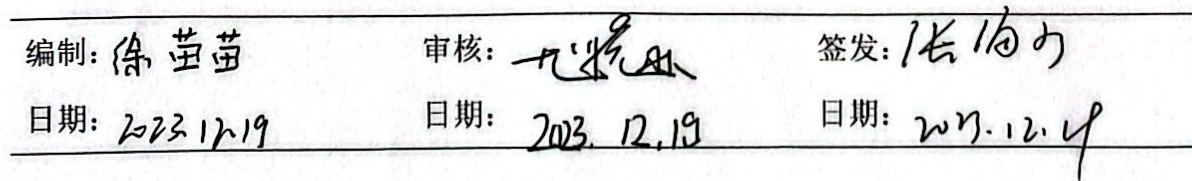 编制：徐苗苗 审核： 签发：张
日期：2023.12.19 日期：2023.12.19 日期：2023.12.19